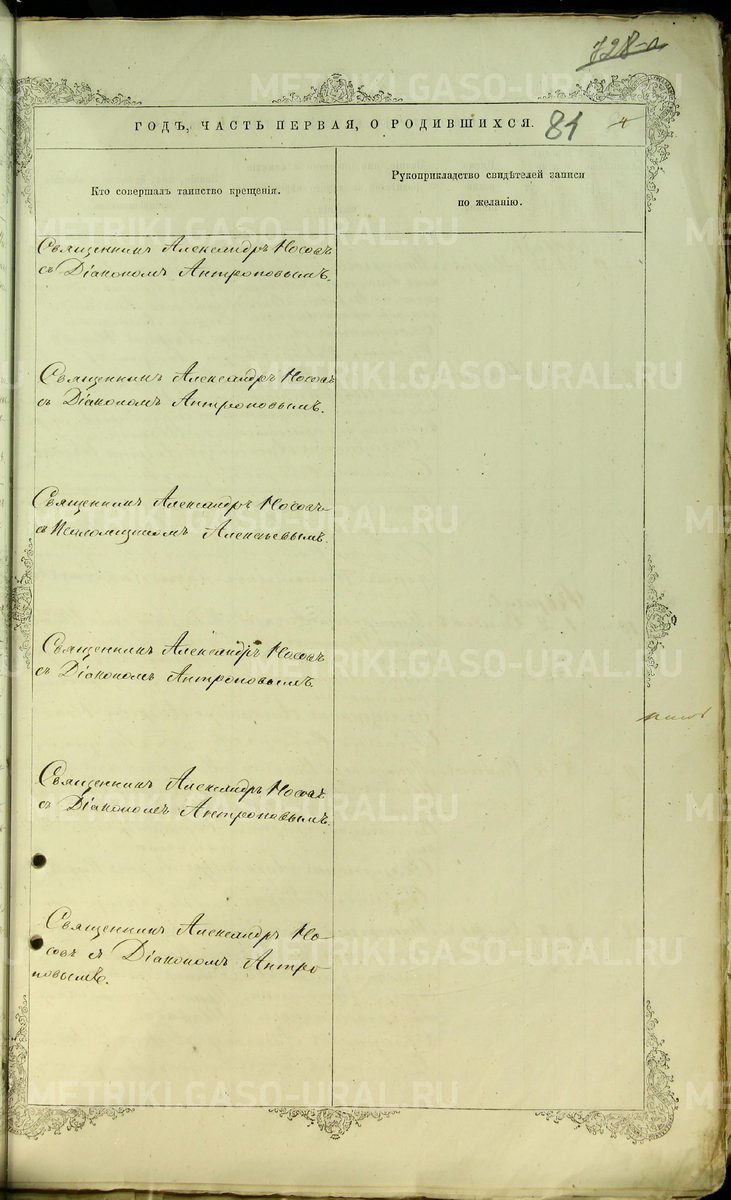 728-а
ГОДЪ, ЧАСТЬ ПЕРВАЯ, О РОДИВШИХСЯ.
81
4
Кто совершалъ таинство крещенія.
Рукоприкладство свидѣтелей записи
по желанію.
Священникъ Александръ Носовъ
съ Діакономъ Антроповымъ.
Священникъ Александръ Носовъ
съ Діакономъ Антроповымъ.
Священникъ Александръ Носовъ
съ Псаломщикомъ Алексѣевымъ.
Священникъ Александръ Носовъ
съ Діакономъ Антроповымъ.
Священникъ Александръ Носовъ
съ Діакономъ Антроповымъ.
Священникъ Александръ Но-
совъ съ Діакономъ Антро-
повымъ.
METRIKI.GASO-URAL.RU